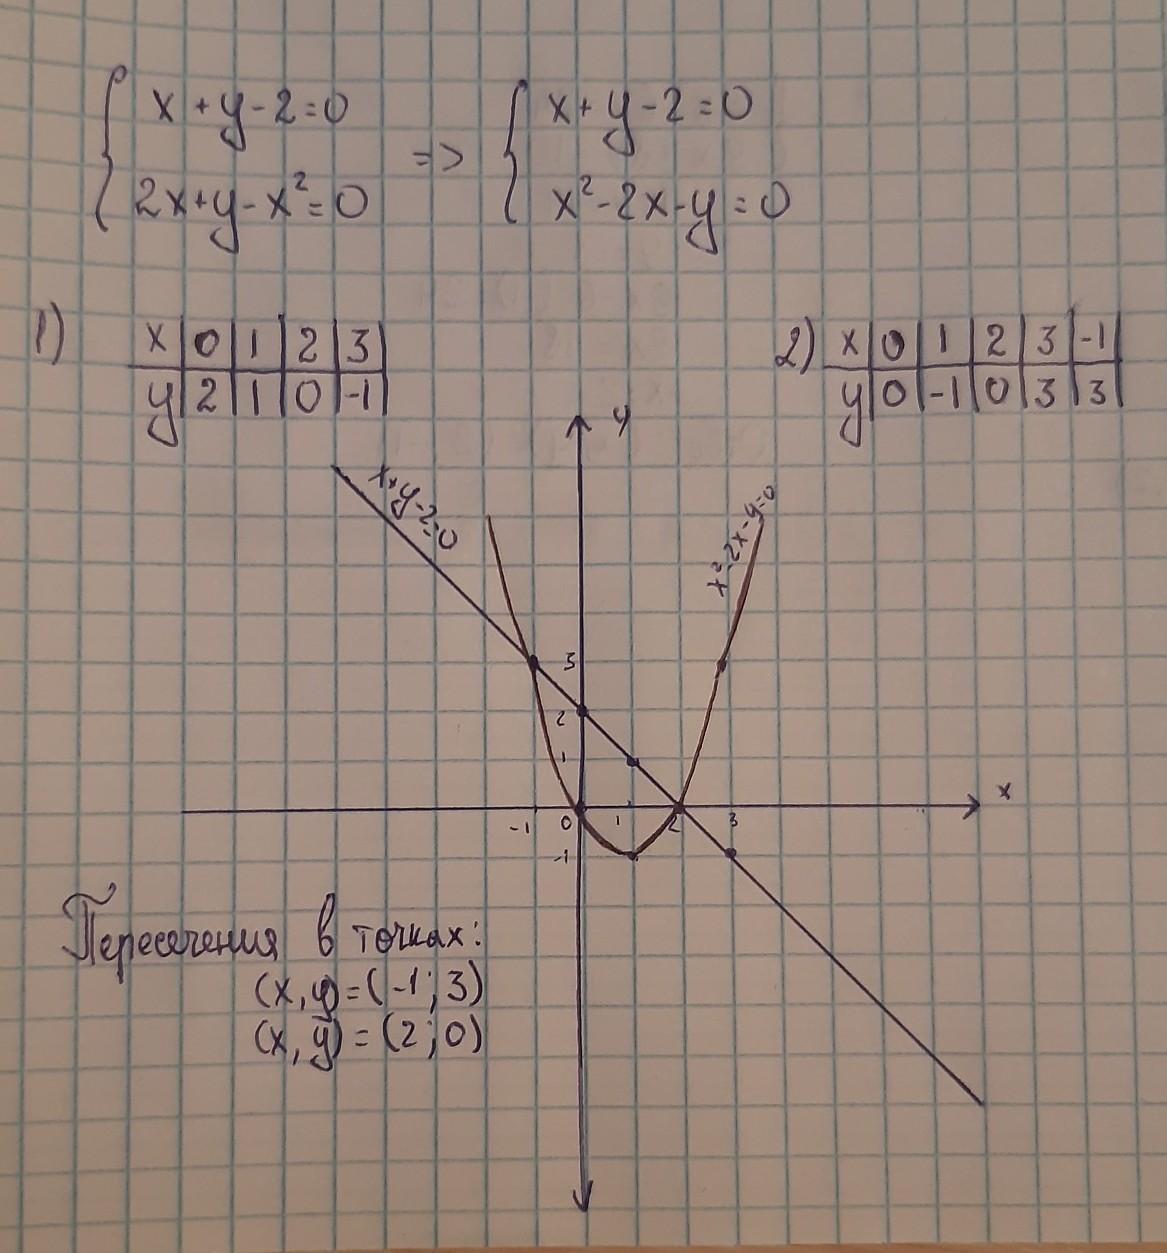 x + y - 2 = 0 => x + y - 2 = 0
2x + y - x² = 0 x² - 2x - y = 0
1) x | 0 | 1 | 2 | 3 |
y | 2 | 1 | 0 | -1 |
2) x | 0 | 1 | 2 | 3 | -1 |
y | 0 | -1 | 0 | 3 | 3 |
y
x+y-2=0
x²-2x-y=0
3
2
1
x
-1 0 1 2 3
-1
Пересечения в точках:
(x, y) = (-1; 3)
(x, y) = (2; 0)